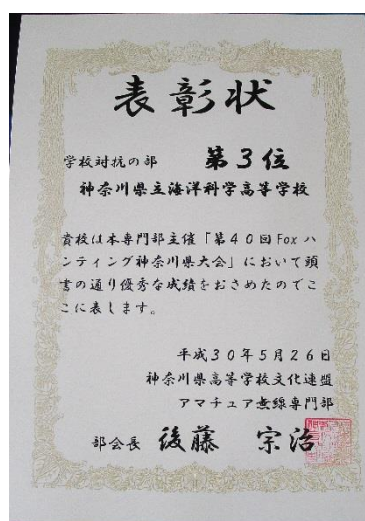 表彰状
学校対抗の部 第3位
神奈川県立海洋科学高等学校
貴校は本専門部主催「第40回Foxハ
ンティング神奈川県大会」において頭
書の通り優秀な成績をおさめたのでこ
こに表します。
平成30年5月26日
神奈川県高等学校文化連盟
アマチュア無線専門部
部会長 後藤 宗治